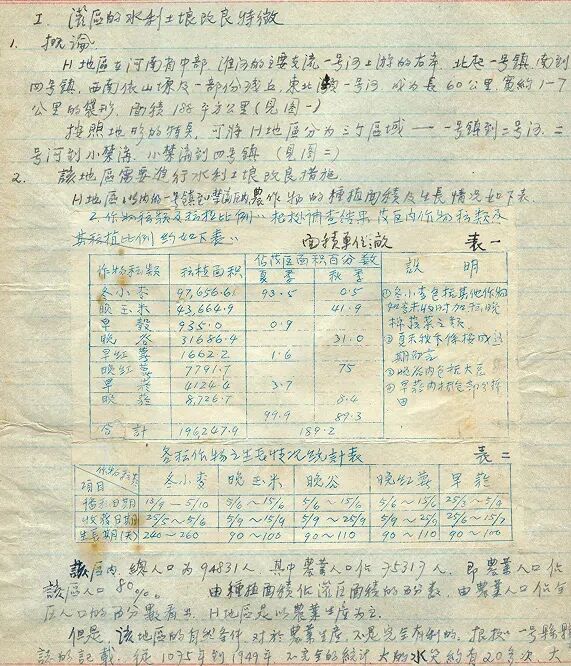 I. 灌區的水利土壤改良特徵
1. 概論
H地區在河南省中部，淮河的主要支流一号河上游的右岸，北起一号鎮，南到
四号鎮，西南依山塬及一部份残丘，東北 一号河，成为長60公里，寬約1-7
公里的 ，面積188平方公里（見圖一）
按照地形的特点，可將H地區分为三个區域——一号鎮到二号河，二
号河到小 ，小 到四号鎮（見圖二）
2. 該地區需要進行水利土壤改良措施
H地區以内的一号鎮到 農作物的種植面積及生長情况如下表.
2. 作物种類及种植比例：根據調查結果 區内作物种類及
其种植比例 如下表：
面積單位畝 表一
作物种類 种植面积 佔 區面积百分數 說明
夏季 秋季
冬小麥 97,656.6 93.5 0.5
晚玉米 43,664.9 41.9
早穀 935.0 0.9
晚谷 31686.4 31.0
早紅薯 1662.2 1.6
晚紅薯 7791.7 75
早菸 4124.4 3.7
晚菸 8,726.7 8.4
99.9 89.3
合計 196247.9 189.2
①冬小麥包括其他作物
各种作物之生長情况統計表 表二
項目 作物种類 冬小麥 晚玉米 晚谷 晚紅薯 早菸
播种日期 15/9—5/10 5/6—15/6 5/6—15/6 5/6—15/6 25/3—5/4
收穫日期 25/5—5/6 5/9—15/9 5/9—25/9 5/9—25/9 25/6—15/7
生長期(天) 240—260 90—100 90—110 90—110 90—100
該區内總人口为94831人，其中農業人口佔75317人，即農業人口佔
該區人口80%。由種植面積佔灌區面積的百分數，由農業人口佔全
區人口的百分數看出，H地區是以農業生產为主.
但是，該地區的自然条件对於農業生產不是完全有利的，根據一号縣縣
誌的記載，從1075年到1949年，不完全的統計，大的水災約有20多次，大